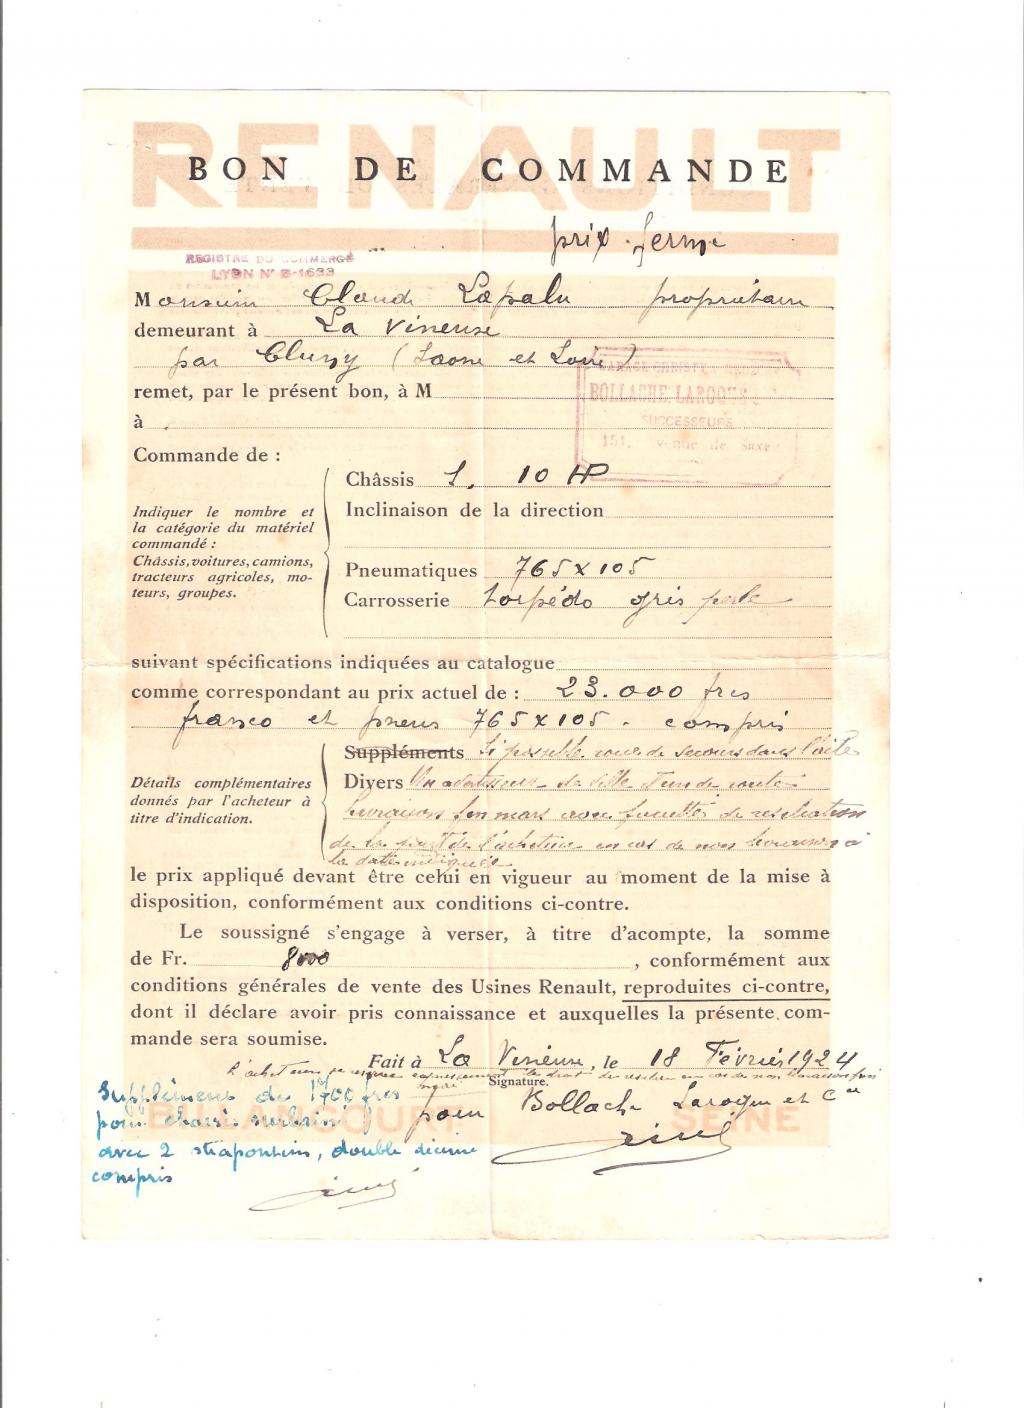 RENAULT
BON DE COMMANDE
prix ferme
REGISTRE DU COMMERCE
LYON N° B-1633
Monsieur Claude Lapalu propriétaire
demeurant à La Vineuse
par Cluny (Saone et Loire)
remet, par le présent bon, à M
BOLLACHE, LAROQUE
SUCCESSEURS
151, de Saxe
à
Commande de :
Indiquer le nombre et
la catégorie du matériel
commandé :
Châssis, voitures, camions,
tracteurs agricoles, mo-
teurs, groupes.
Châssis 1. 10 HP
Inclinaison de la direction
Pneumatiques 765 x 105
Carrosserie torpédo gris perle
suivant spécifications indiquées au catalogue
comme correspondant au prix actuel de : 23.000 frcs
franco et pneus 765 x 105 - compris
Détails complémentaires
donnés par l'acheteur à
titre d'indication.
Suppléments Si possible roue de secours dans l'aile
Divers Un avertisseur de ville & un de route
Livraison fin mars avec faculté de résiliation
de la part de l'acheteur en cas de non livraison à
la date indiquée
le prix appliqué devant être celui en vigueur au moment de la mise à
disposition, conformément aux conditions ci-contre.
Le soussigné s'engage à verser, à titre d'acompte, la somme
de Fr. 8000 , conformément aux
conditions générales de vente des Usines Renault, reproduites ci-contre,
dont il déclare avoir pris connaissance et auxquelles la présente com-
mande sera soumise.
Fait à La Vineuse, le 18 Février 1924
l'acheteur se réserve expressément le droit de résilier en cas de non livraison fin
Signature.
pour Bollache Laroque et Cie
Supplément de 1700 frcs
pour chassis surbaissé
avec 2 strapontins, double décime
compris
BILLANCOURT SEINE